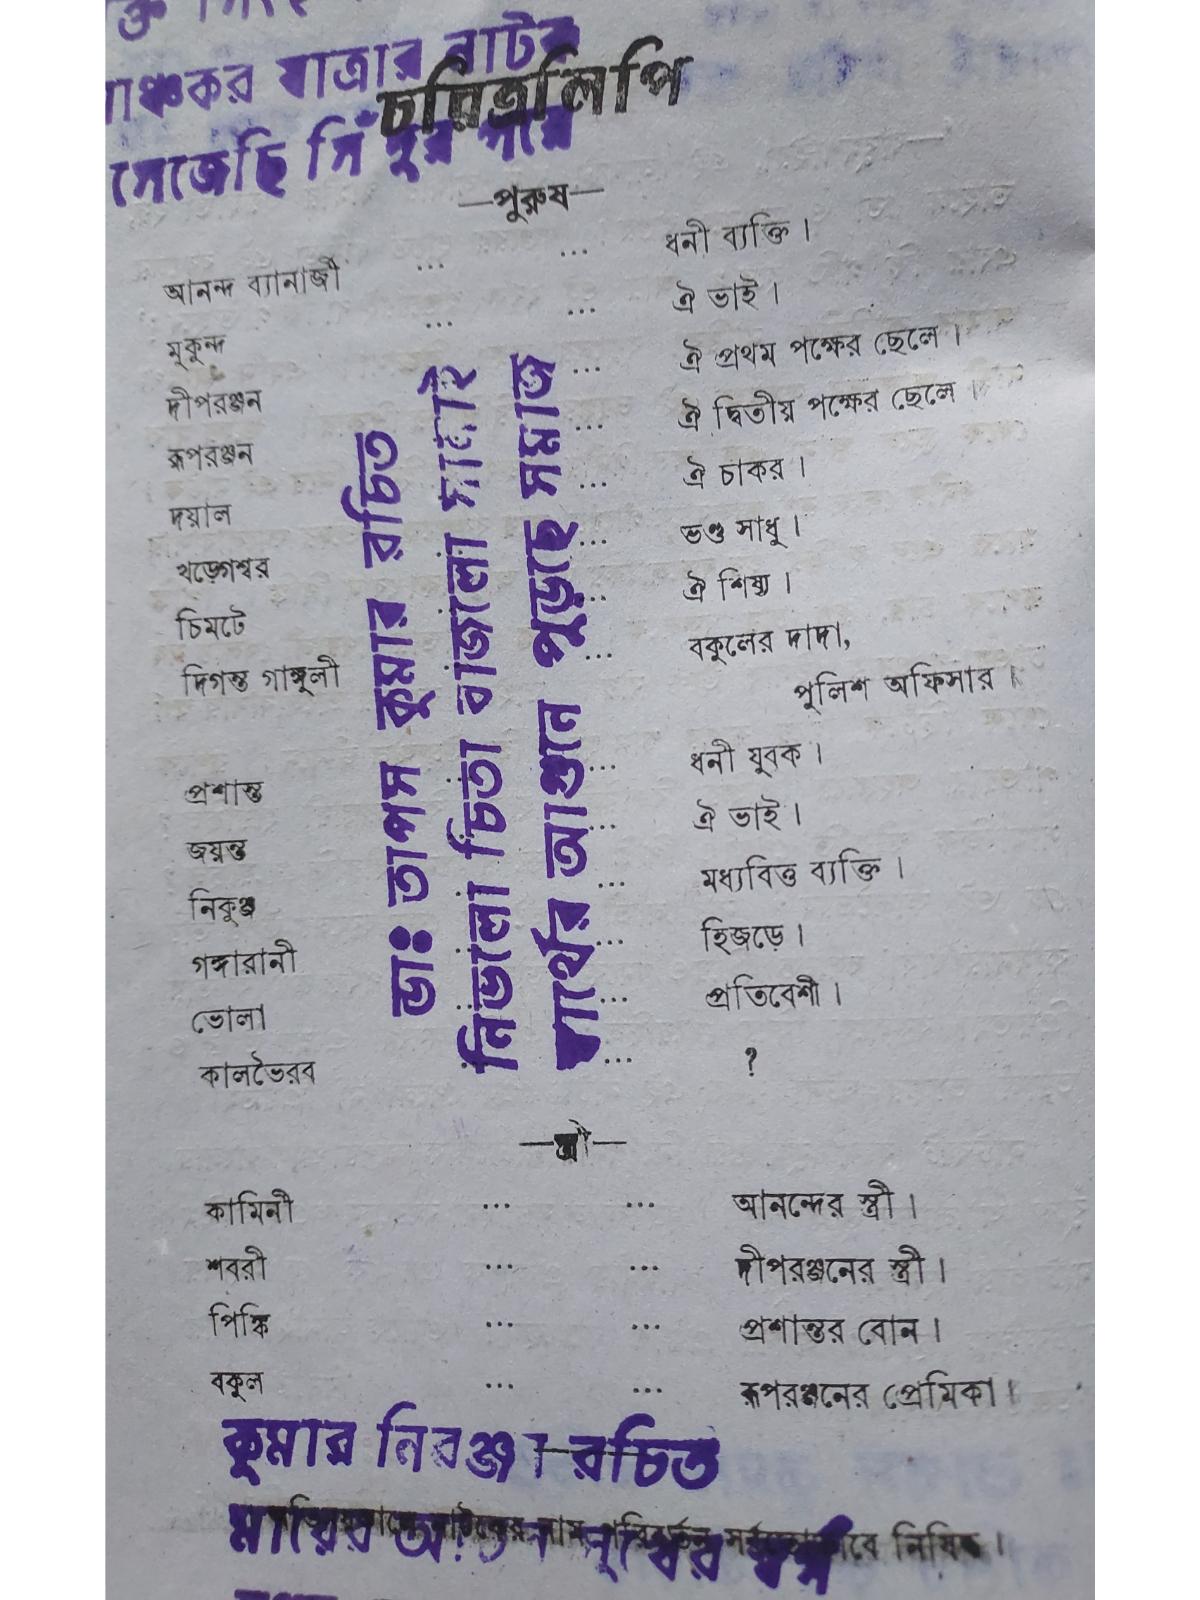 রোমাঞ্চকর যাত্রার নাটক
চরিত্রলিপি
সেজেছি সিঁদুর পরে
—পুরুষ—
আনন্দ ব্যানার্জী ... ... ধনী ব্যক্তি।
মুকুন্দ ... ... ঐ ভাই।
দীপরঞ্জন ... ঐ প্রথম পক্ষের ছেলে।
রূপরঞ্জন ... ঐ দ্বিতীয় পক্ষের ছেলে।
দয়াল ... ঐ চাকর।
খড়্গেশ্বর ... ভণ্ড সাধু।
চিমটে ... ঐ শিষ্য।
দিগন্ত গাঙ্গুলী ... বকুলের দাদা,
পুলিশ অফিসার।
প্রশান্ত ... ধনী যুবক।
জয়ন্ত ... ঐ ভাই।
নিকুঞ্জ ... মধ্যবিত্ত ব্যক্তি।
গঙ্গারানী ... হিজড়ে।
ভোলা ... প্রতিবেশী।
কালভৈরব ... ?
ডাঃ তাপস কুমার রচিত
নিভালো চিতা বাজালো সানাই
স্বার্থের আগুনে পুড়ছে সমাজ
—স্ত্রী—
কামিনী ... ... আনন্দের স্ত্রী।
শবরী ... ... দীপরঞ্জনের স্ত্রী।
পিঙ্কি ... ... প্রশান্তর বোন।
বকুল ... ... রূপরঞ্জনের প্রেমিকা।
কুমার নিরঞ্জন রচিত
নাটকের নাম পরিবর্তন সর্বতোভাবে নিষিদ্ধ।
মায়ের স্বর্গ